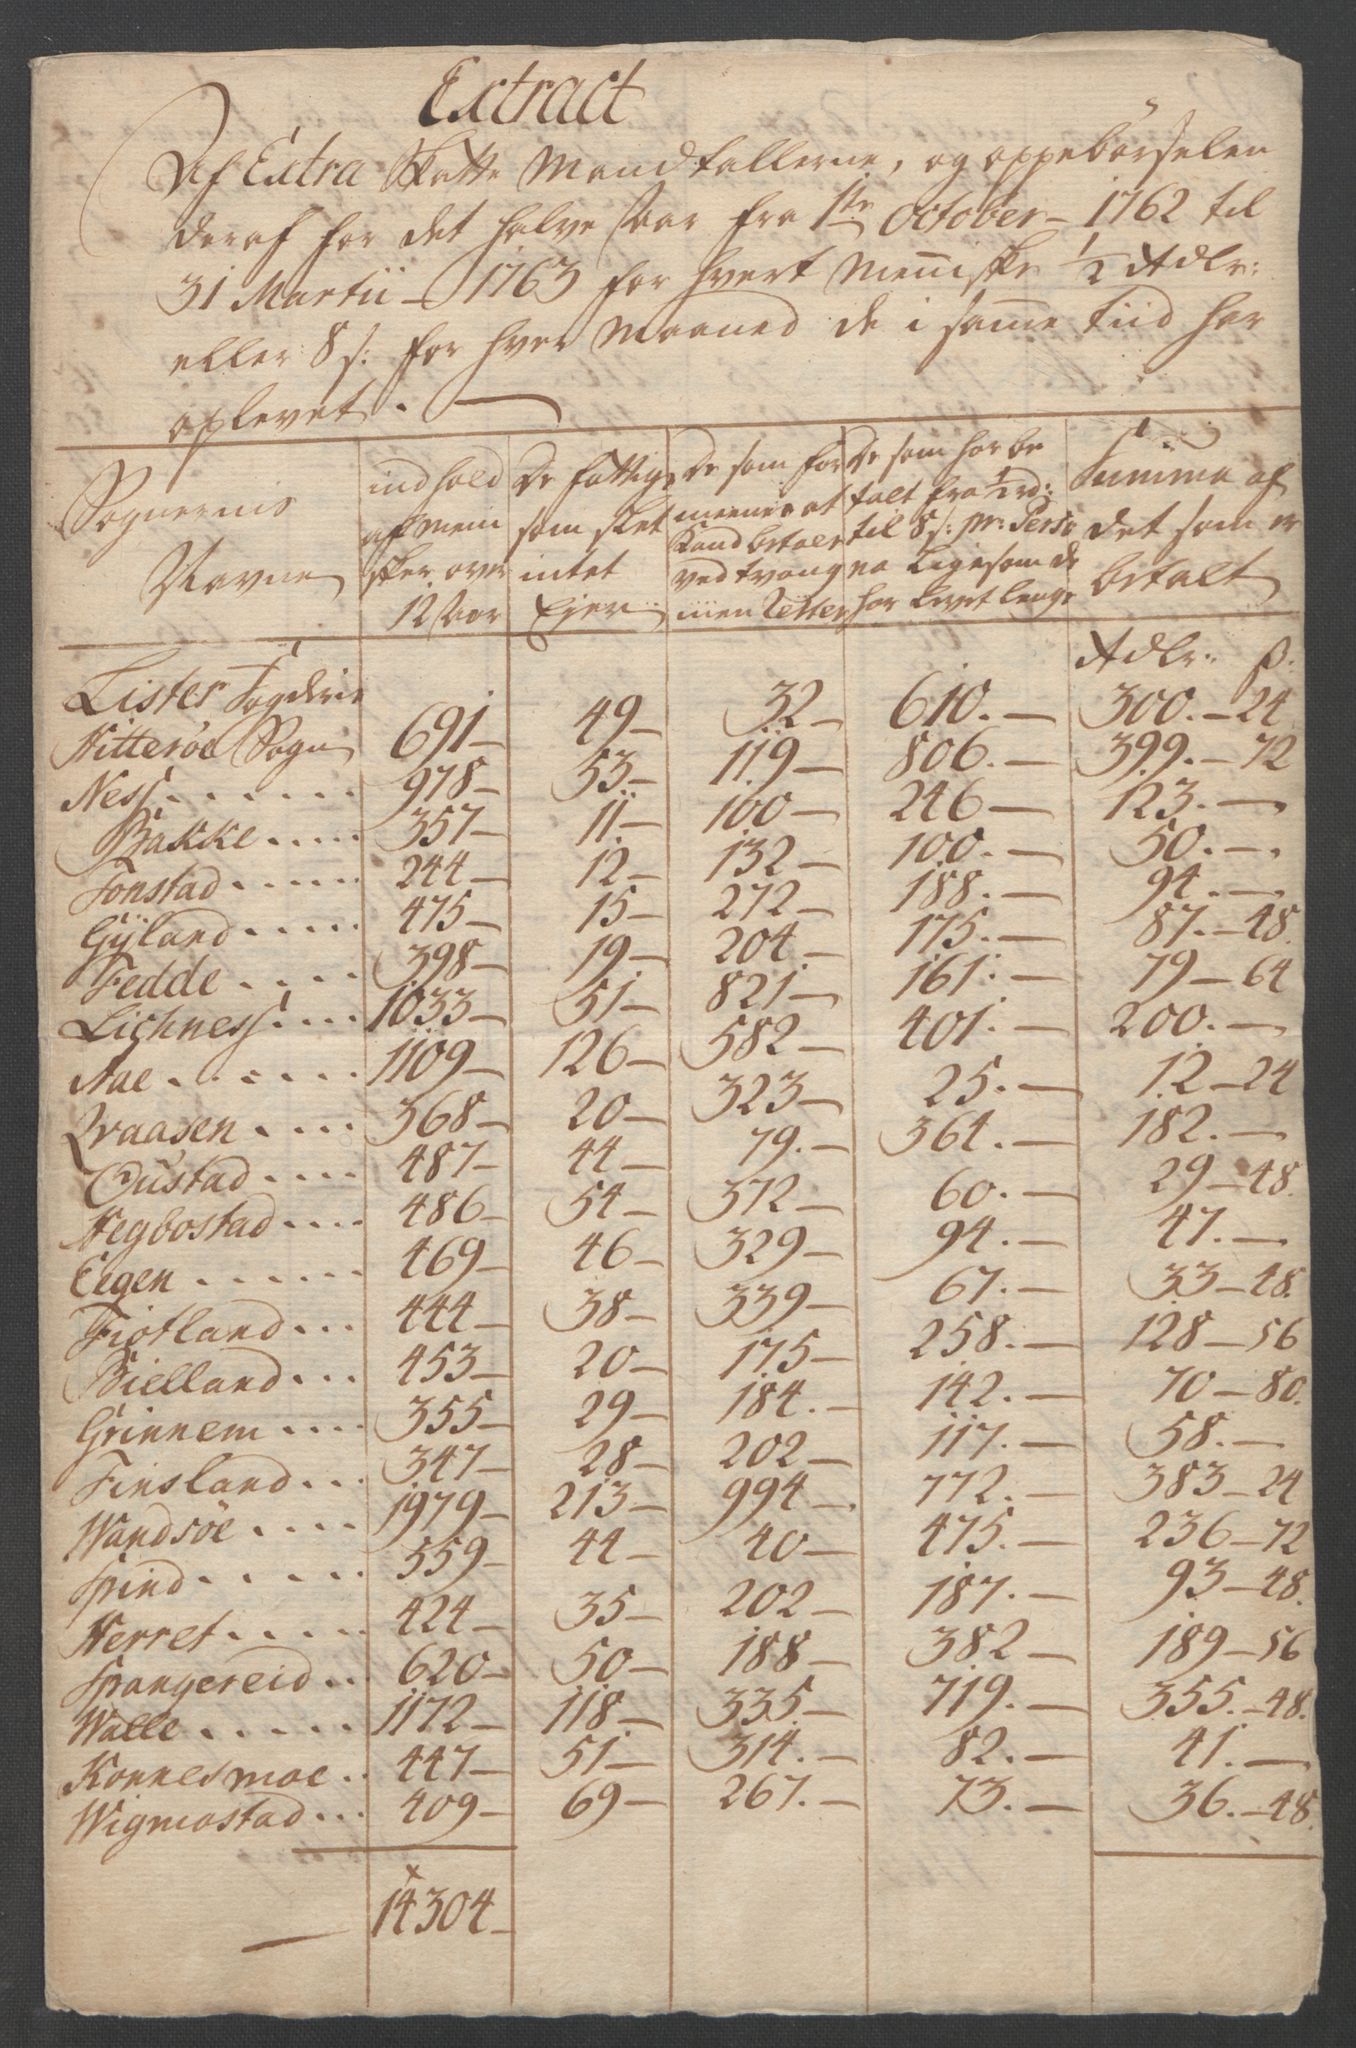 Extract
Af Extra Skatte Mandtallerne, og oppebørselen
deraf for det halve Aar fra 1ste October 1762 til
31 Martii 1763 for hvert Menniske 1/2 Rdlr:
eller 8 s: for hver Maaned de i samme tiid har
oplevet.
Sognernis Navne | indhold af Men sker over 12 Aar | De fattige som slet intet Ejer | De som for meenes at Kand betale ved tvang men letter | De som har be talt fra 1/2 rd: til 8 s: pr: Perso na ligesom de har levet lenge | Summa af det som er betalt
Rdlr: s:
Lister Fogderie
Hitterøe Sogn 691 49 32 610. 300. 24
Ness 978 53 119 806. 399. 72
Bakke 357 11 100 246 123.
Tonstad 244 12 132 100. 50.
Gyland 475 15 272 188. 94.
Fedde 398 19 204 175. 87. 48.
Lichness 1033 51 821 161. 79 64
Aae 1109 126 582 401. 200.
Qvaasen 368 20 323 25. 12 24
Oustad 487 44 79. 364. 182.
Hegbostad 486 54 372 60. 29 48.
Eegen 469 46 329 94. 47.
Fiotland 444 38 339 67. 33 48.
Bielland 453 20 175 258. 128 56
Grinnem 355 29 184. 142. 70 80.
Finsland 347 28 202 117. 58.
Wandsøe 1979 213 994 772. 383 24
Spind 559 44 40 475. 236 72
Herret 424 35 202 187. 93 48.
Spangereid 620 50 188 382 189 56
Walle 1172 118 335 719. 355. 48.
Konnesmoe 447 51 314. 82. 41.
Wigmostad 409 69 267. 73. 36. 48.
14304